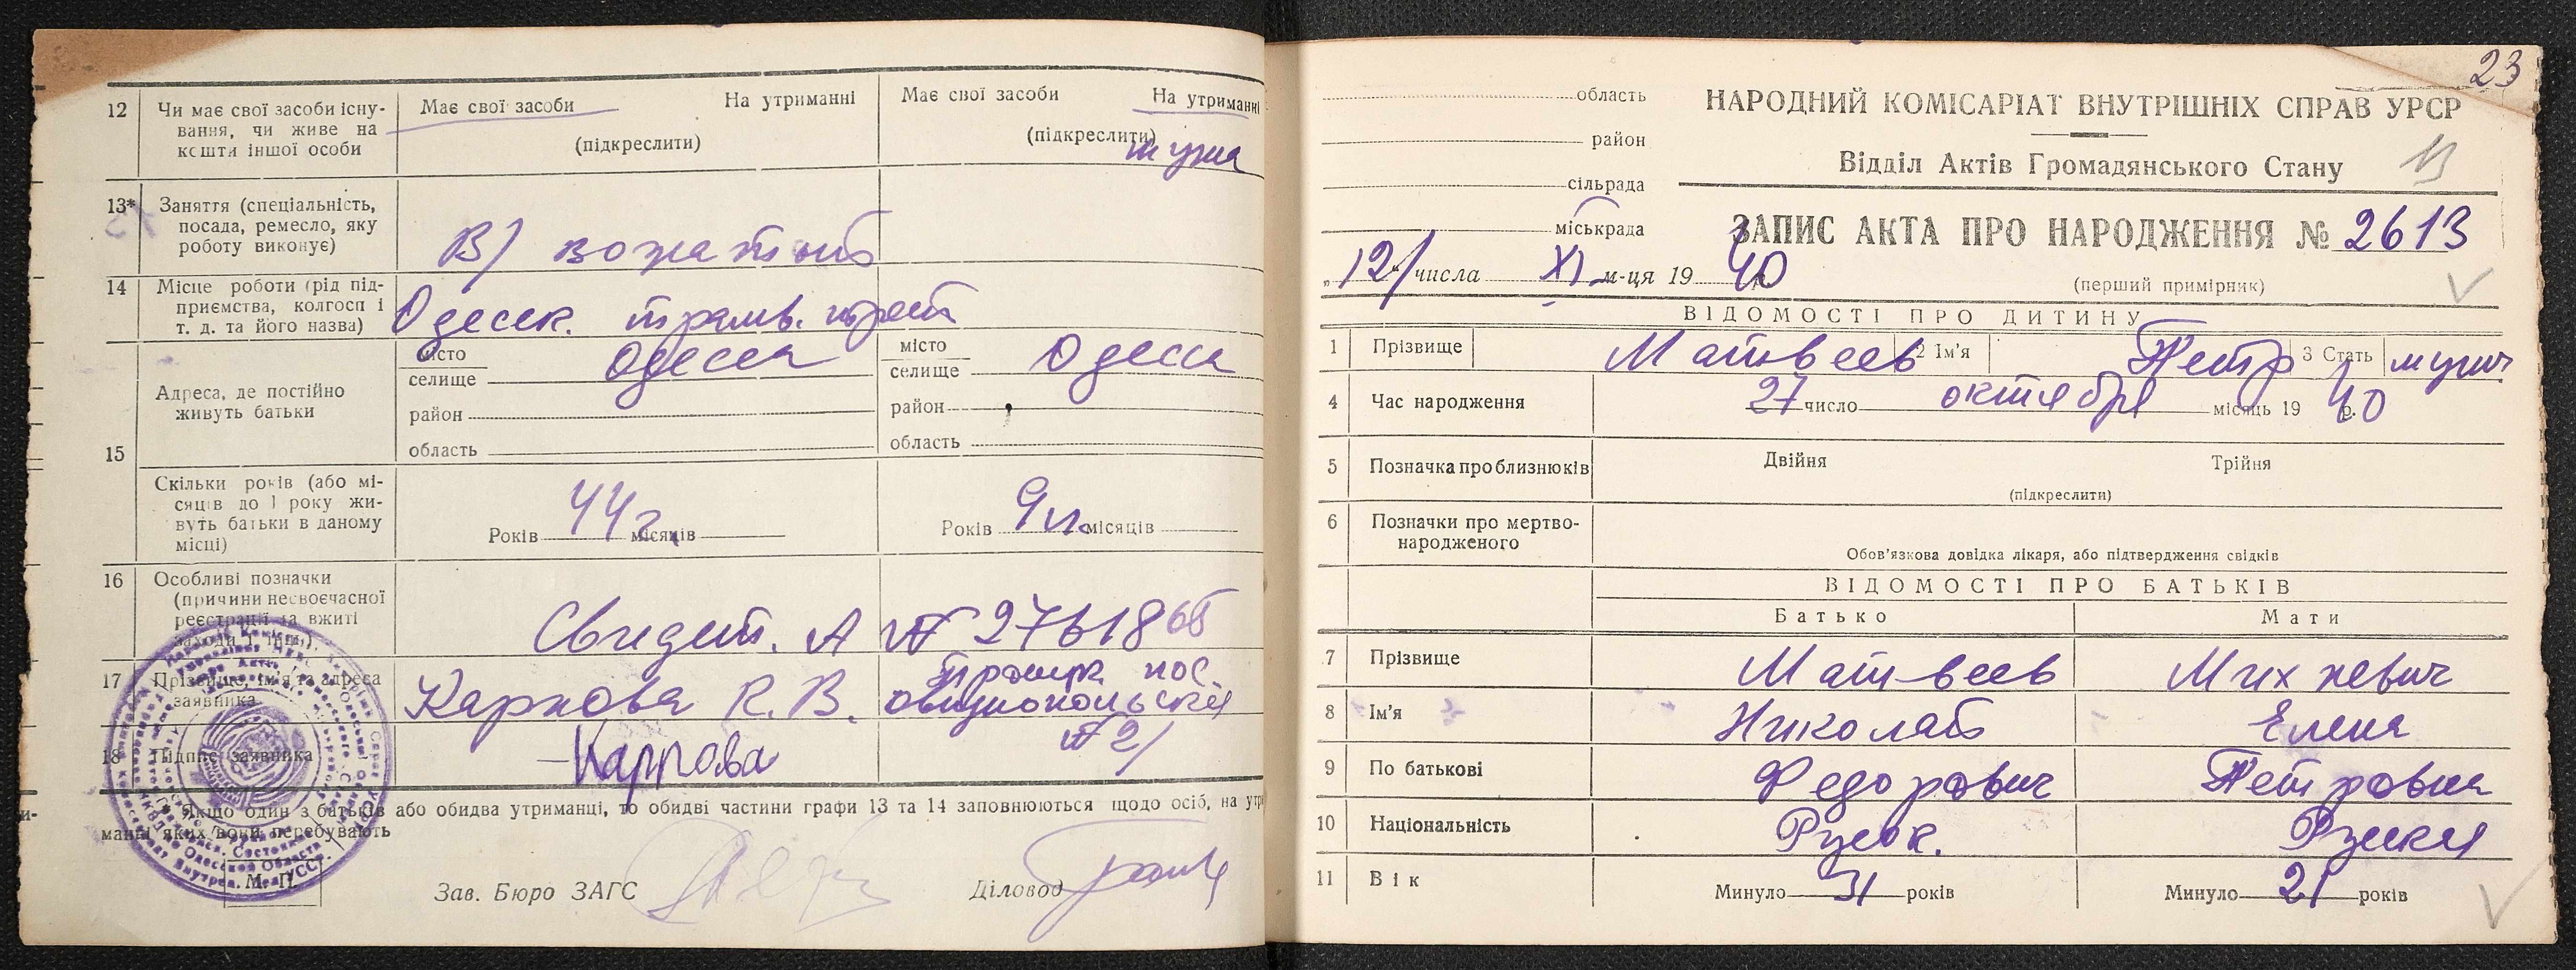 12 Чи має свої засоби існування, чи живе на кошти іншої особи
Має свої засоби На утриманні (підкреслити)
Має свої засоби На утриманні (підкреслити)
13* Заняття (спеціальність, посада, ремесло, яку роботу виконує)
В/ вожатый
14 Місце роботи (рід підприємства, колгосп і т. д. та його назва)
Одеск. трамв. трест
15 Адреса, де постійно живуть батьки
місто Одесса
селище
район
область
місто Одесса
селище
район
область
Скільки років (або місяців до 1 року живуть батьки в даному місці)
Років місяців
Років 9 місяців
16 Особливі позначки (причини несвоєчасної реєстрації та вжиті заходи і інш.)
Свидет. А № 276186
17 Прізвище, ім'я та адреса заявника
Карпова К. В. овидиопольская
№ 21
18 Підпис заявника
Карпова
Якщо один з батьків або обидва утриманці, то обидві частини графи 13 та 14 заповнюються щодо осіб, на утри-
манні яких вони перебувають
М. П.
Зав. Бюро ЗАГС Діловод
23
область
район
сільрада
міськрада
НАРОДНИЙ КОМІСАРІАТ ВНУТРІШНІХ СПРАВ УРСР
Відділ Актів Громадянського Стану
13
ЗАПИС АКТА ПРО НАРОДЖЕННЯ № 2613
„12" числа XI м-ця 1940 р.
(перший примірник)
ВІДОМОСТІ ПРО ДИТИНУ
1 Прізвище Матвеев 2 Ім'я Петр 3 Стать мужч
4 Час народження 27 число октября місяць 1940 р.
5 Позначка про близнюків Двійня Трійня
(підкреслити)
6 Позначки про мертвонародженого
Обов'язкова довідка лікаря, або підтвердження свідків
ВІДОМОСТІ ПРО БАТЬКІВ
Батько Мати
7 Прізвище Матвеев Михневич
8 Ім'я Николай Елена
9 По батькові Федорович Петровна
10 Національність Русск. Русская
11 Вік Минуло 31 років Минуло 21 років